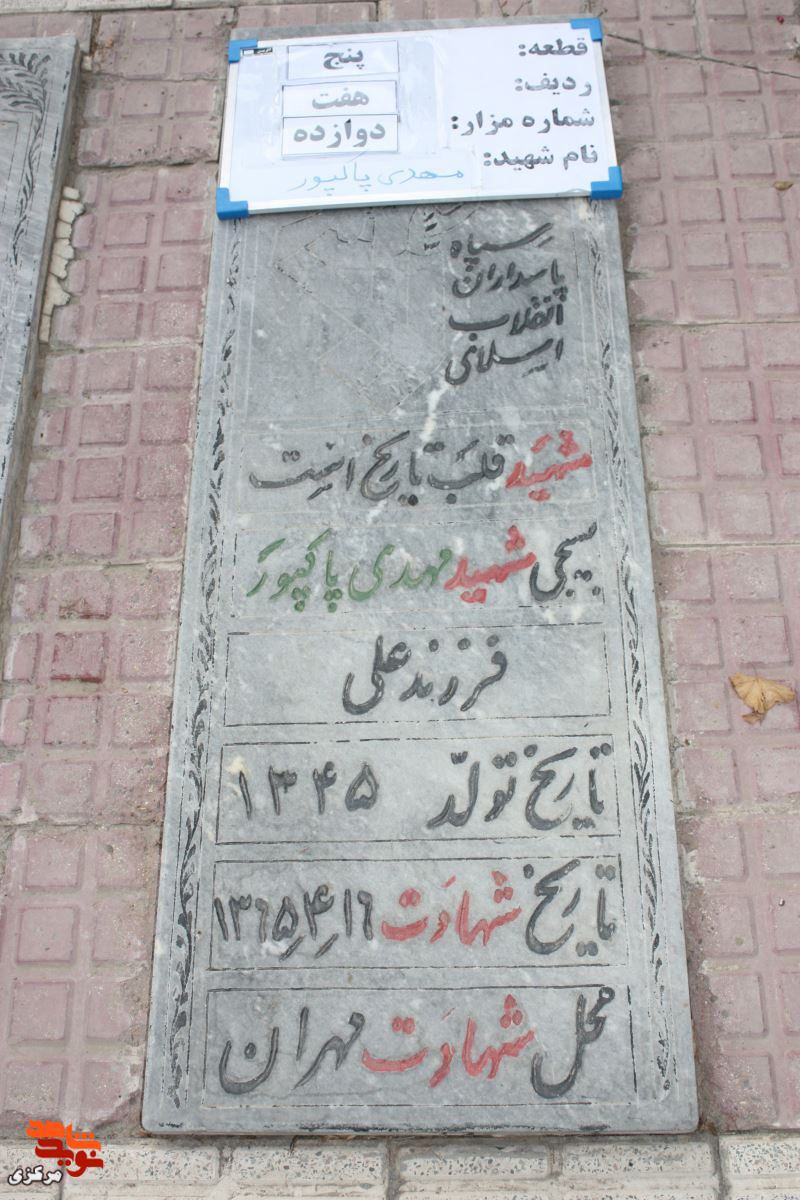 قطعه: پنج
ردیف: هفت
شماره مزار: دوازده
نام شهید: مهدی پاکپور
سپاه
پاسداران
انقلاب
اسلامی
شهید قلب تاریخ است
بسیجی شهید مهدی پاکپور
فرزند علی
تاریخ تولّد ۱۳۴۵
تاریخ شهادت ۱۳۶۵٫۴٫۱۶
محل شهادت مهران
نوید شاهد
مرکزی